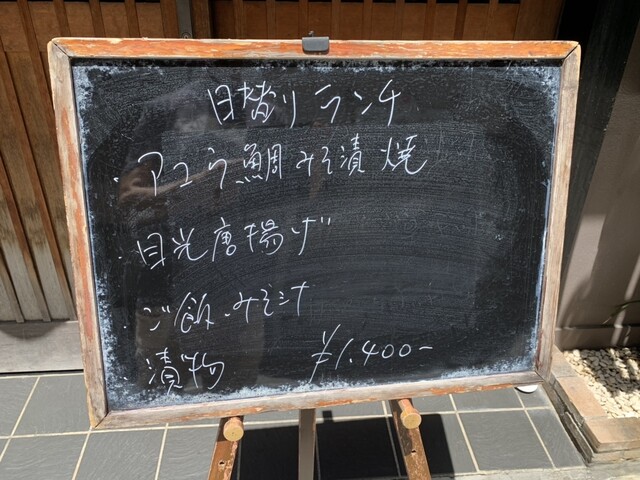 日替りランチ
・アコウ鯛みそ漬焼
・目光唐揚げ
・ご飯・みそ汁
漬物 ¥1.400-